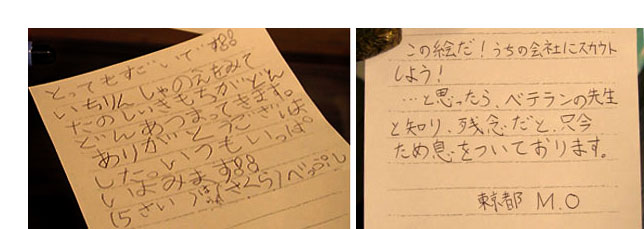 とってもすごいです
いちりんしゃのえをみて
たのしいきもちがどん
どんあつまってきます。
ありがとうございま
した。いつもいっぱ
いよみます
(5さい (さくら)べっぷし
この絵だ!うちの会社にスカウト
しよう!
…と思ったら、ベテランの先生
と知り、残念だと、只今
ため息をついております。
東京都 M.O